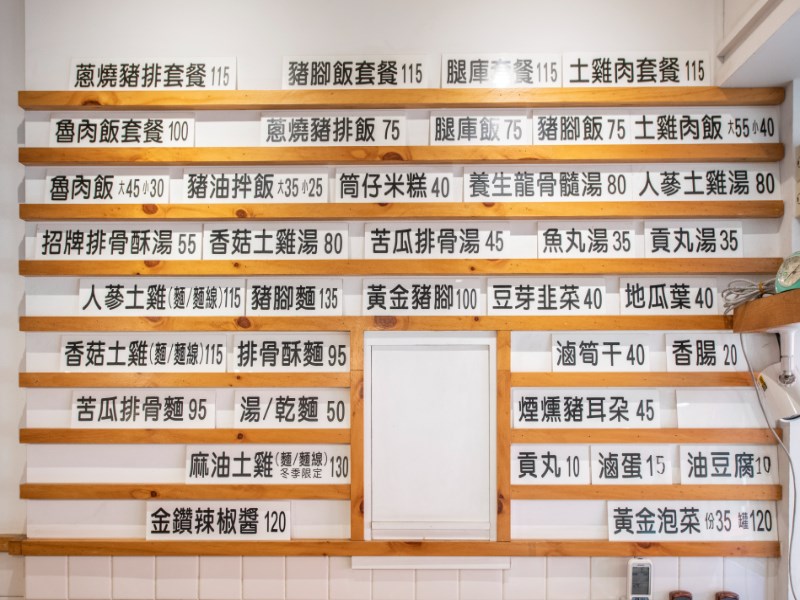 蔥燒豬排套餐115 豬腳飯套餐115 腿庫套餐115 土雞肉套餐115
魯肉飯套餐100 蔥燒豬排飯75 腿庫飯75 豬腳飯75 土雞肉飯大55小40
魯肉飯大45小30 豬油拌飯大35小25 筒仔米糕40 養生龍骨髓湯80 人蔘土雞湯80
招牌排骨酥湯55 香菇土雞湯80 苦瓜排骨湯45 魚丸湯35 貢丸湯35
人蔘土雞(麵/麵線)115 豬腳麵135 黃金豬腳100 豆芽韭菜40 地瓜葉40
香菇土雞(麵/麵線)115 排骨酥麵95 滷筍干40 香腸20
苦瓜排骨麵95 湯/乾麵50 煙燻豬耳朶45
麻油土雞(麵/麵線)冬季限定130 貢丸10 滷蛋15 油豆腐10
金鑽辣椒醬120 黃金泡菜份35罐120